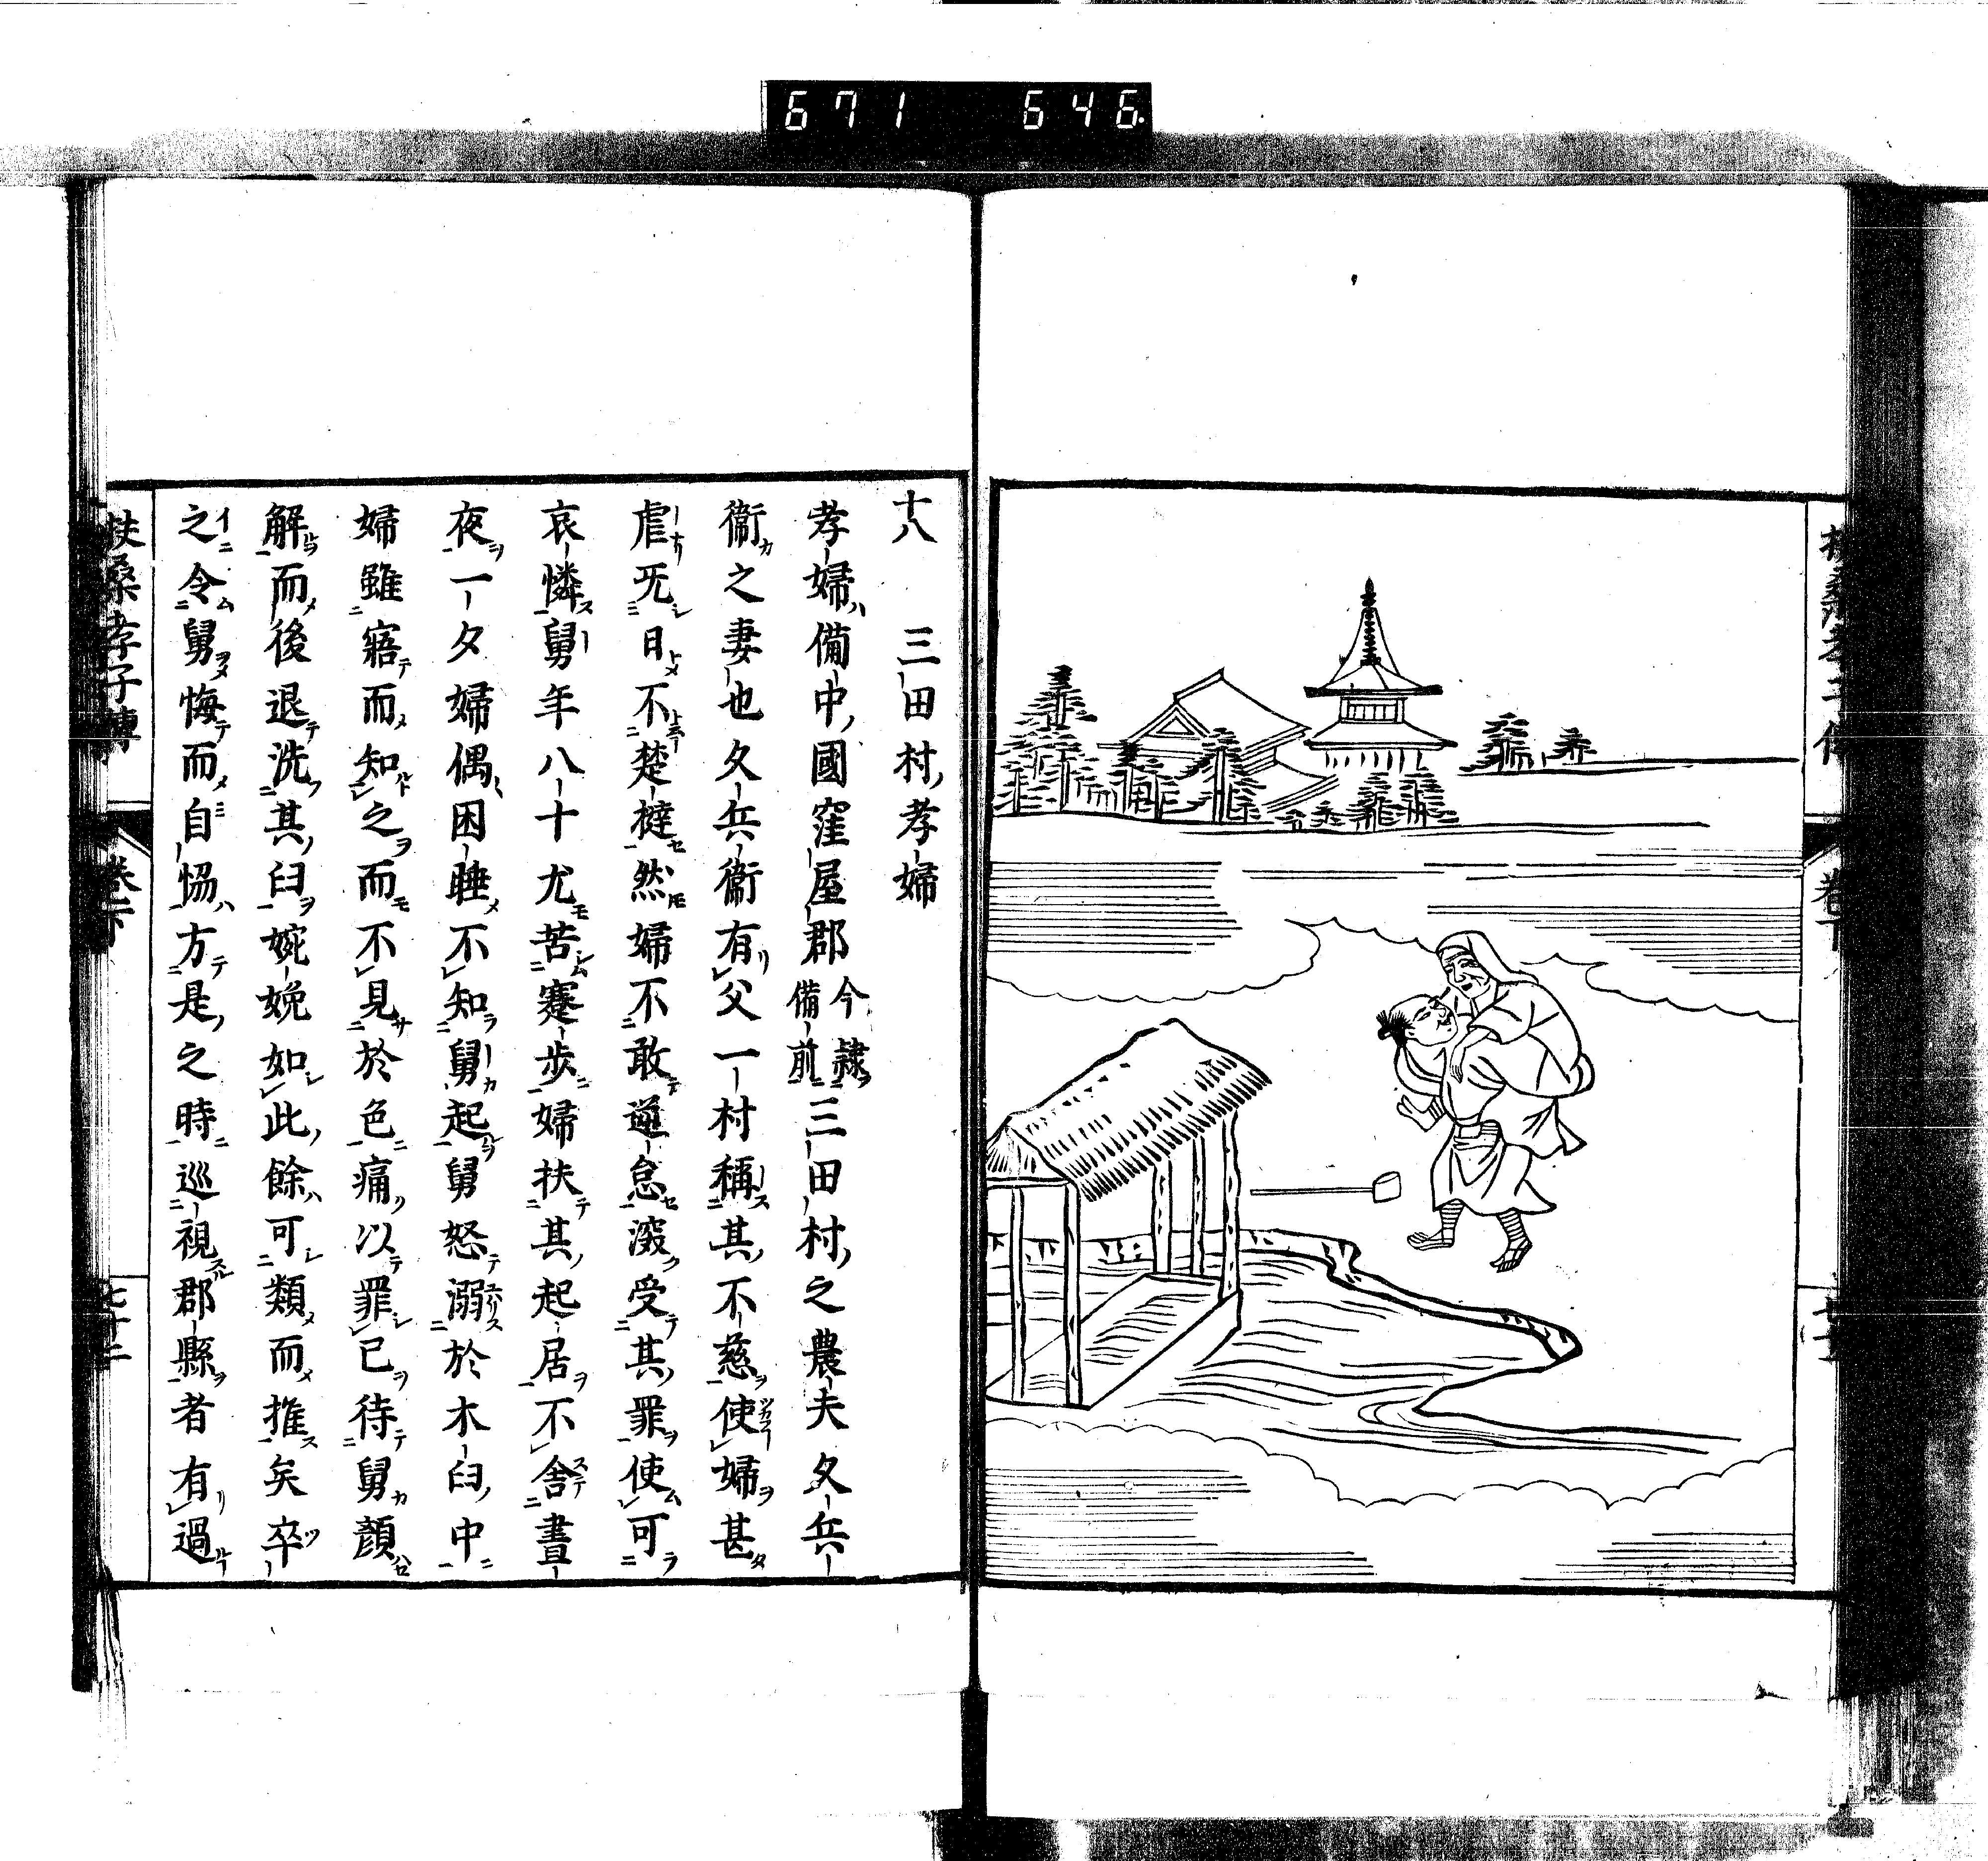 671 646
十八 三田村孝婦
孝婦ハ備中國窪屋郡今隷備前三田村之農夫久兵
衞之妻也久兵衞有父一村稱其不慈使婦甚
虐旡日不楚撻然婦不敢逆怠深受其罪使可
哀憐舅年八十尤苦蹇步婦扶其起居不舍晝
夜一夕婦偶困睡不知舅起舅怒溺於木臼中
婦雖寤而知之而不見於色痛以罪已待舅顏
解而後退洗其臼婉娩如此餘可類而推矣卒
之令舅悔而自恊方是之時巡視郡縣者有過
扶桑孝子傳 卷下 七十二